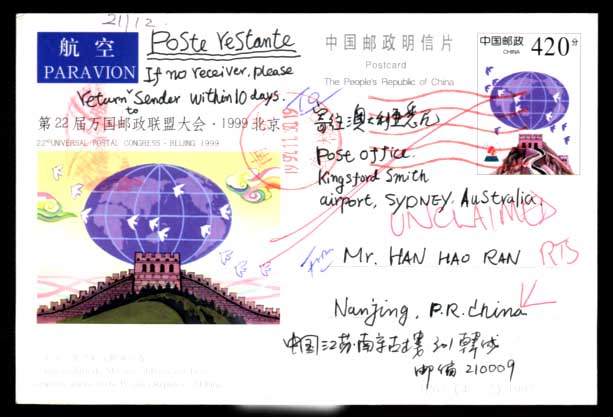 21/12
航空
PARAVION
Poste restante
If no receiver, please
return to Sender within 10 days.
中国邮政明信片
Postcard
The People's Republic of China
中国邮政
CHINA
420分
第22届万国邮政联盟大会·1999北京
22nd UNIVERSAL POSTAL CONGRESS·BEIJING 1999
To
寄往:澳大利亚悉尼
Post office.
Kingsford Smith
airport, SYDNEY. Australia.
UNCLAIMED
From
Mr. HAN HAO RAN
RTS
Nanjing, P.R. China
中国江苏·南京
301
邮编 210009